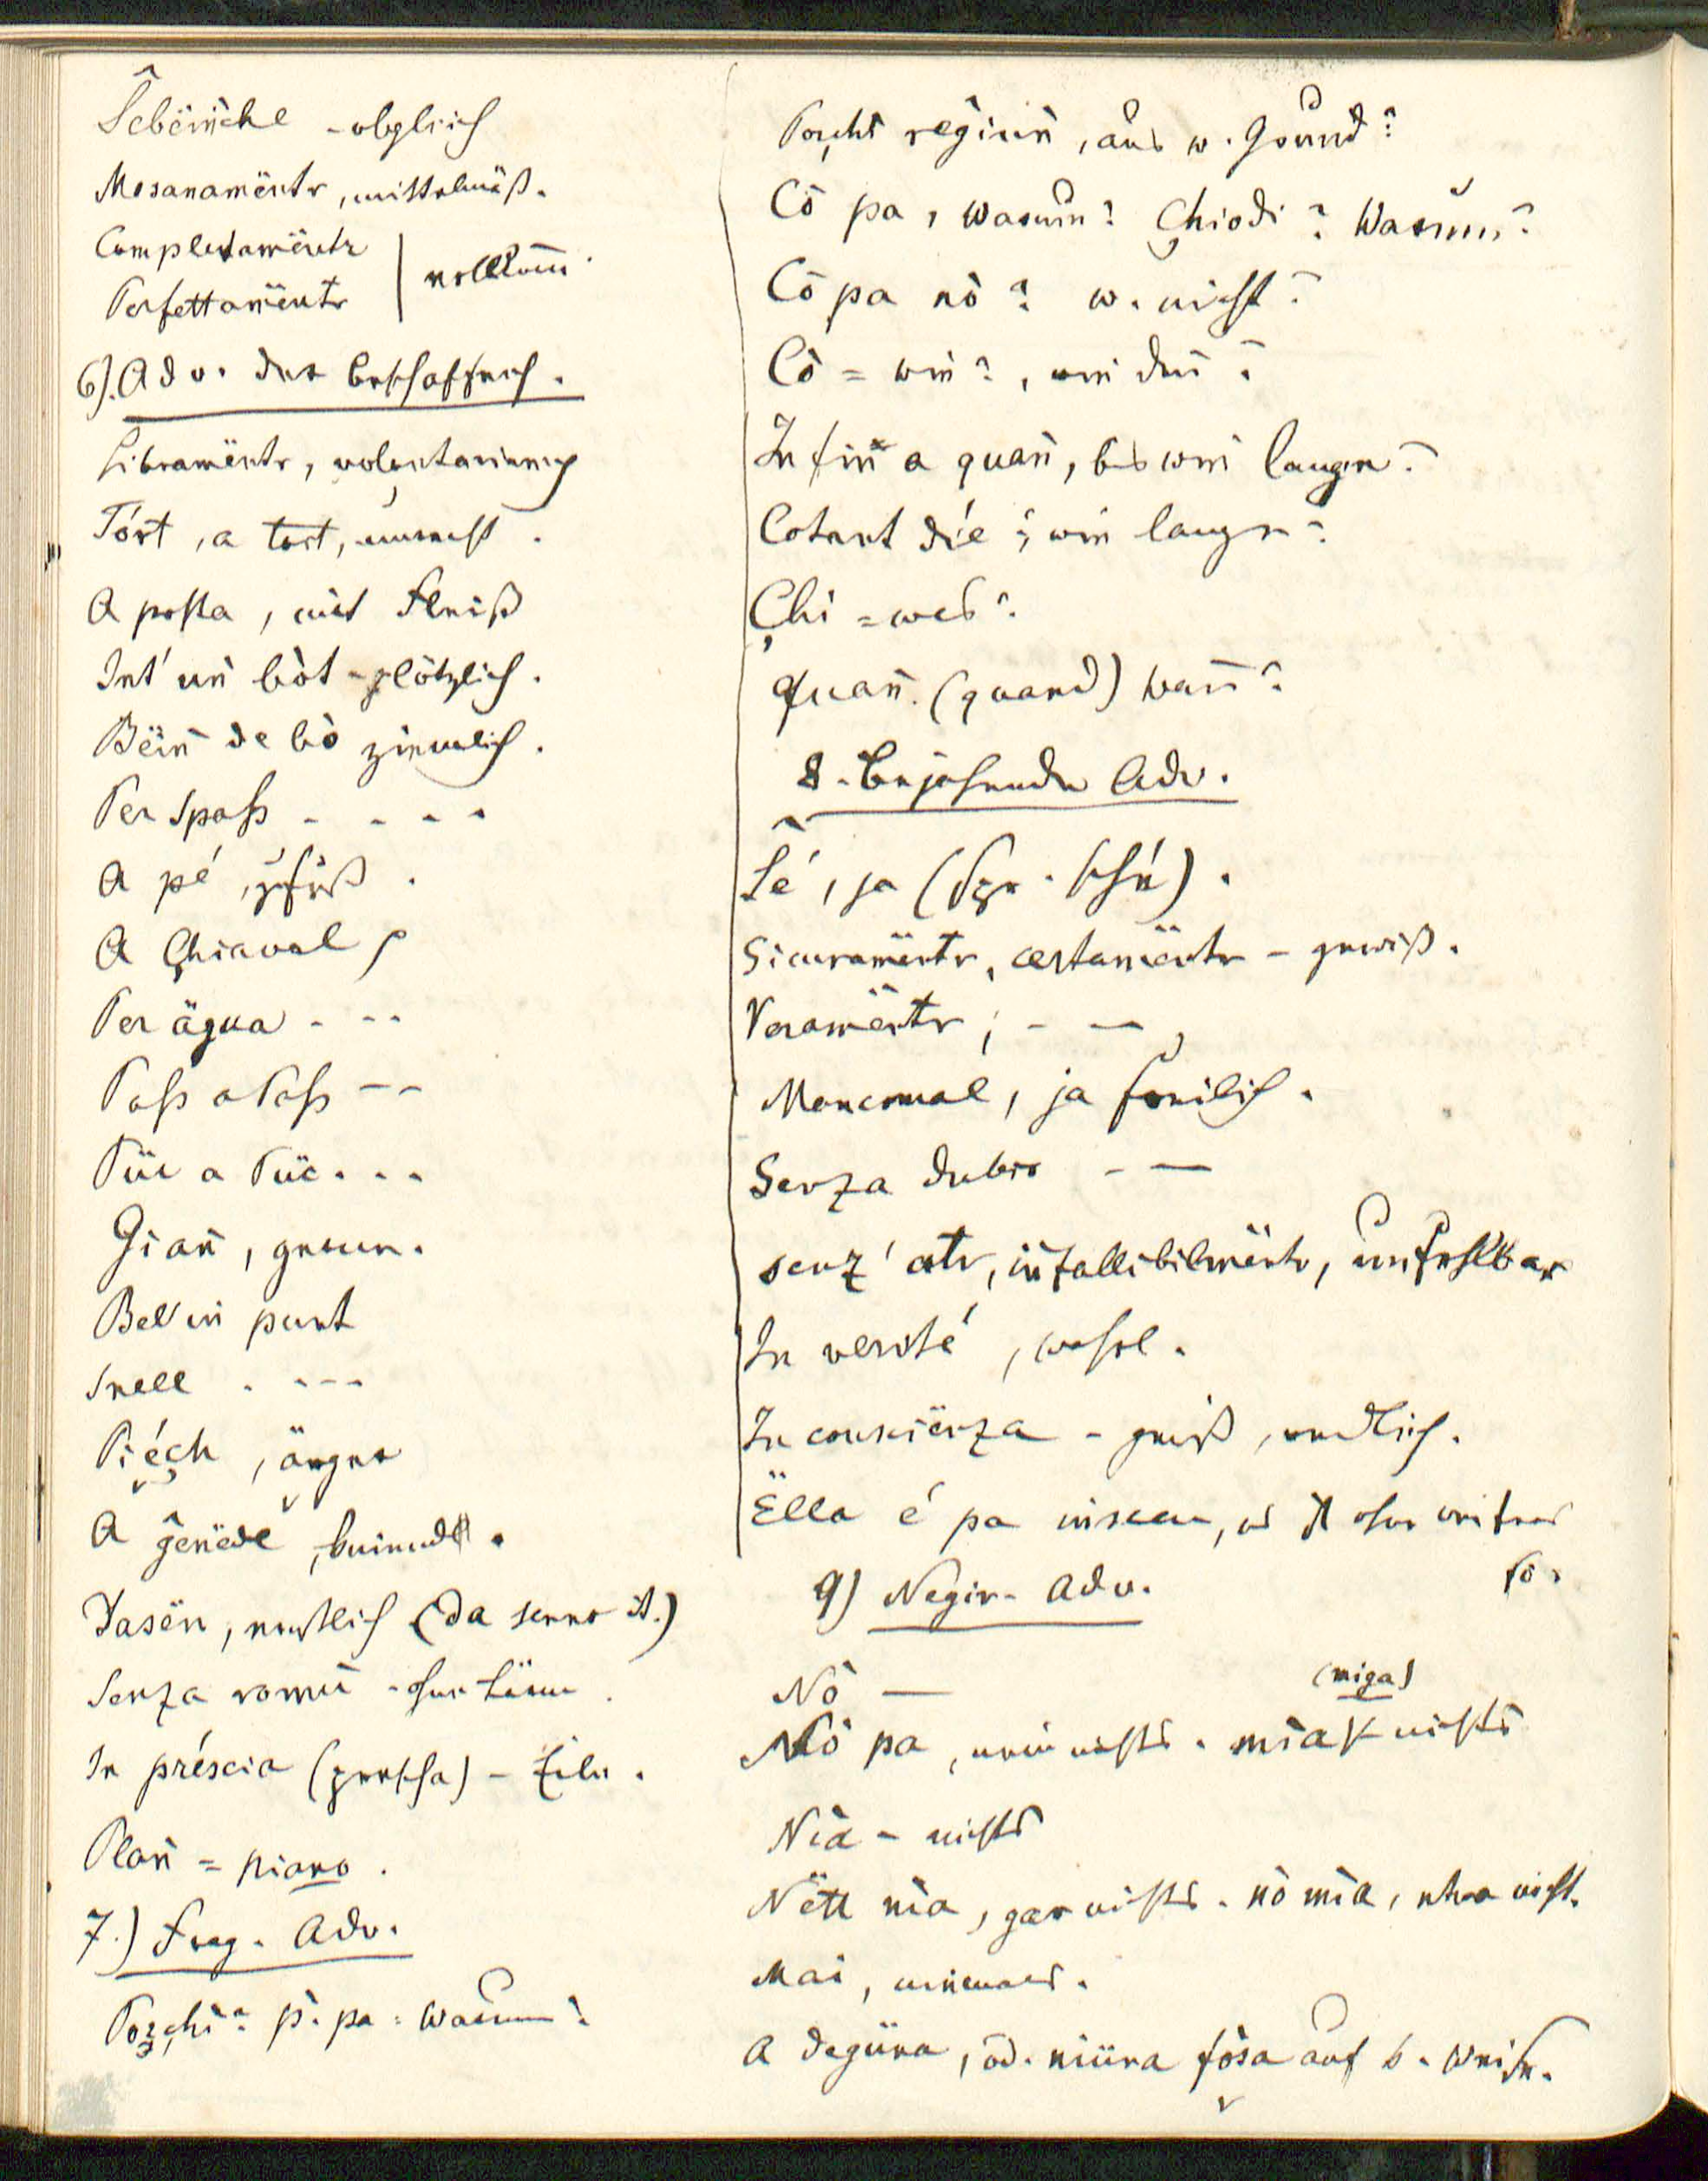 Ŝebëin̄che - obgleich
Mesanamënter, mittelmäß.
Completamënter
Perfettamënter | vollkom̄.
6). Adv. der Beschaffenh.
Liberamënter,
Tórt, a tort, unrecht.
A posta, mit Fleiß
Int' un̄ bòt - plötzlich.
Bëin̄ de bò ziemlich.
Per spaß - - - -
A pé, z'fuß.
A Çhiaval
Per ägua - - -
Paß a Paß - -
Püc a Püc - - -
Gian̄, gerne.
Bel in punt
Snell - - - -
Piéch, ärger
A ĝenëde,
Dasën, ernstlich (da senno it.)
Senza romù - ohne Lärm.
In préscia (prescha) - Eile.
Plan̄ = piano.
7.) Frag. Adv.
Porçhi? p. pa: Warum?
Porçhi regiun̄, aus w. Grund?
Cò pa, Warum? Çhiodì? Warum?
Cò pa nò? w. nicht?
Cò = wie?, wie den̄?
Infin̄ a quan̄, bis wie lange?
Cotant die? wie lange?
Çhi = wer?
Quan̄. (quand) wan̄?
8. Bejahende Adv.
Ŝé, ja (spr. sché).
Sicuramënter, certamënter - gewiß.
Veramënter; - —
Mancomal, ja freilich.
Senza dubio - —
senz' ater, infallibilmënter, unfehlbar
In verité, wohl.
In conscienza - gewiß, redlich.
Ëlla é pa insceu, es ist ohne weiters
so.
9) Negir. Adv.
Nò —
(miga)
Nò pa, nein nichts. mìa nichts
Nìa - nichts
Nëtt nìa, gar nichts. nò mìa, etwa nicht.
Mai, niemals.
A degüna, od. niüna fósa auf k. Weise.